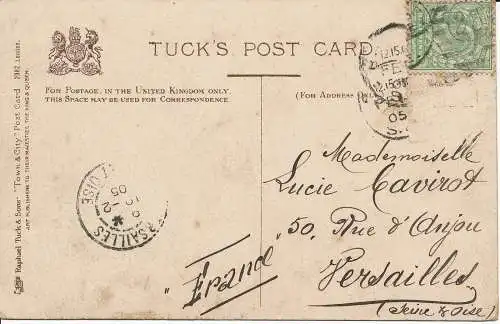 TUCK'S POST CARD
FOR POSTAGE, IN THE UNITED KINGDOM ONLY,
THIS SPACE MAY BE USED FOR CORRESPONDENCE
(FOR ADDRESS ONLY
Raphael Tuck & Sons' "Town & City" Post Card 2012
ART PUBLISHERS TO THEIR MAJESTIES THE KING & QUEEN.
12.15
FE
05
VERSAILLES
OISE
10-2
05
Mademoiselle
Lucie Cavirot
50, Rue d'Anjou
Versailles
(Seine & Oise)
France